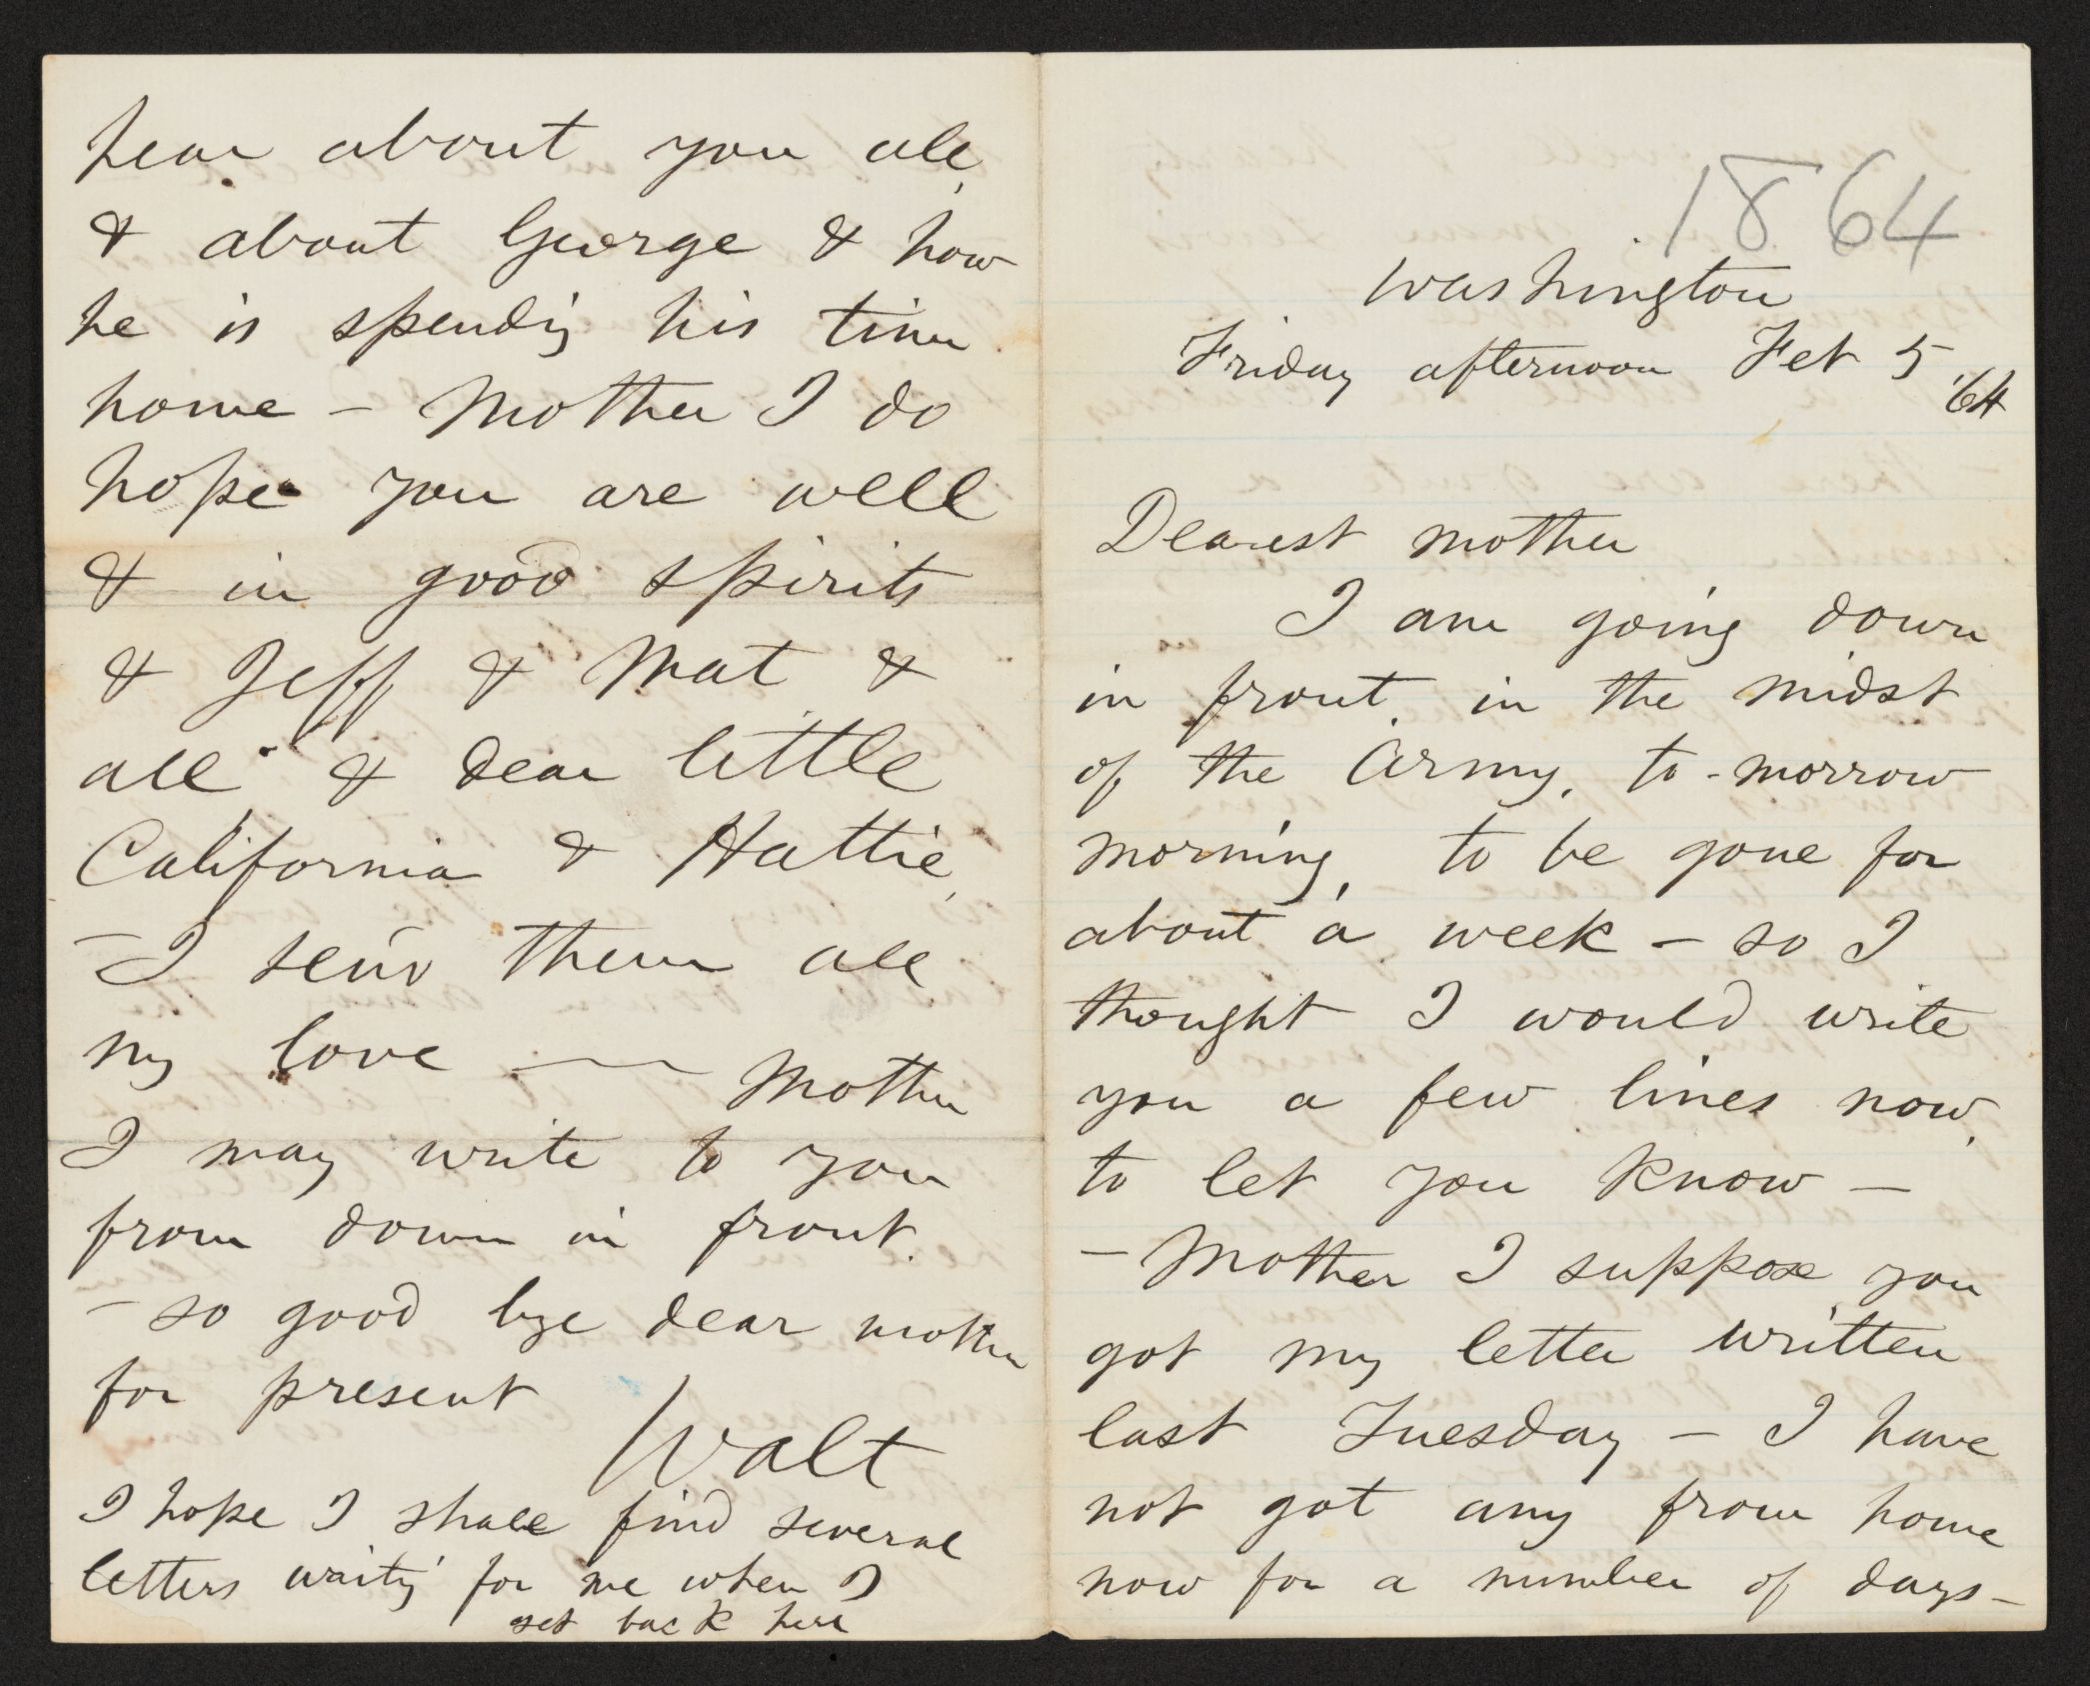 1864
Washington
Friday afternoon Feb 5
'64
Dearest mother
I am going down
in front, in the midst
of the Army, to-morrow
morning, to be gone for
about a week — so I
thought I would write
you a few lines now,
to let you know —
— Mother I suppose you
got my letter written
last Tuesday — I have
not got any from home
now for a number of days —
hear about you all,
& about George & how
he is spending his time
home — Mother I do
hope you are well
& in good spirits
& Jeff & Mat &
all & dear little
California & Hattie,
— I send them all
my love — Mother
I may write to you
from down in front.
— so good bye dear mother
for present
Walt
I hope I shall find several
letters waiting for me when I
get back here